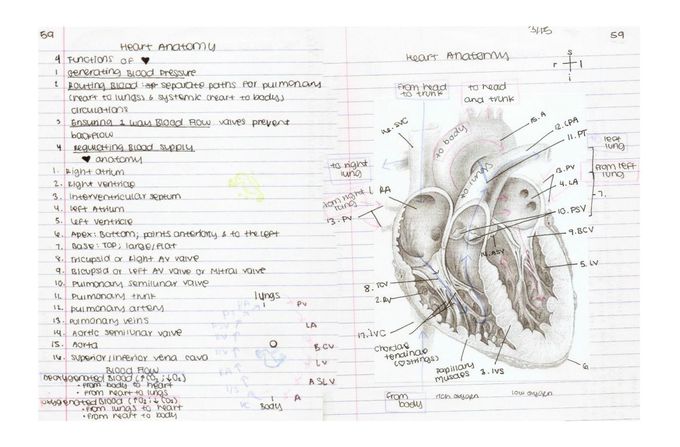 59
Heart Anatomy
4 Functions of ♥
1 Generating Blood Pressure
2 Routing Blood: separate paths for pulmonary
(heart to lungs) & systemic (heart to body)
circulations
3 Ensuring 1 way Blood Flow valves prevent
backflow
4 Regulating Blood Supply
♥ anatomy
1. Right Atrium
2. Right ventricle
3. Interventricular septum
4. Left Atrium
5. Left ventricle
6. Apex: Bottom; points anteriorly & to the left
7. Base: Top; large/flat
8. Tricuspid or Right AV valve
9. Bicuspid or Left AV valve or Mitral valve
10. Pulmonary semilunar valve
11. Pulmonary trunk
12. Pulmonary artery
13. Pulmonary veins
14. Aortic semilunar valve
15. Aorta
16. Superior/Inferior vena cava
Blood Flow
Deoxygenated Blood (↑CO₂; ↓O₂)
• From body to heart
• From heart to lungs
Oxygenated Blood (↑O₂; ↓CO₂)
• From lungs to heart
• From heart to body
lungs
PV
LA
BCV
LV
ASLV
A
Body
3/15
59
Heart Anatomy
s
r l
i
from head
to trunk
to head
and trunk
16. SVC
to body
15. A
12. LPA
11. PT
left
lung
to right
lung
to lungs
13. PV
from left
lung
4. LA
7.
from right
lung
1. RA
13. PV
10. PSV
9. BCV
14. ASV
5. LV
8. TCV
2. RV
17. IVC
Chordae
tendinae
(♥ strings)
papillary
muscles
3. IVS
6
from
body
rich oxygen
low oxygen